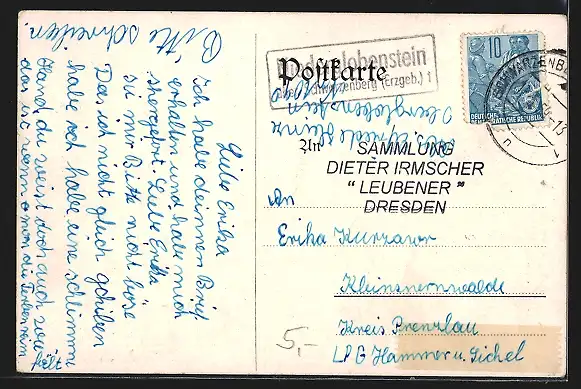 Liebe Erika
Ich habe deinnen Brief
erhalten und habe mich
Liebe Erika
sei mir Bitte nicht böse
Das ich nicht gleich geschiben
habe ich habe eine schlimme
Hand du weist doch auch wie
das ist wenn man die Finken nim
hält
Bitte schreiben
Postkarte
lobenstein
Schwarzenberg (Erzgeb.) 1
10
DEUTSCHE
DEMOKRATISCHE REPUBLIK
SCHWARZENBE
An
SAMMLUNG
DIETER IRMSCHER
" LEUBENER "
DRESDEN
An
Erika
Kreis Prenzlau
LPG Hammer u. Sichel
5,-